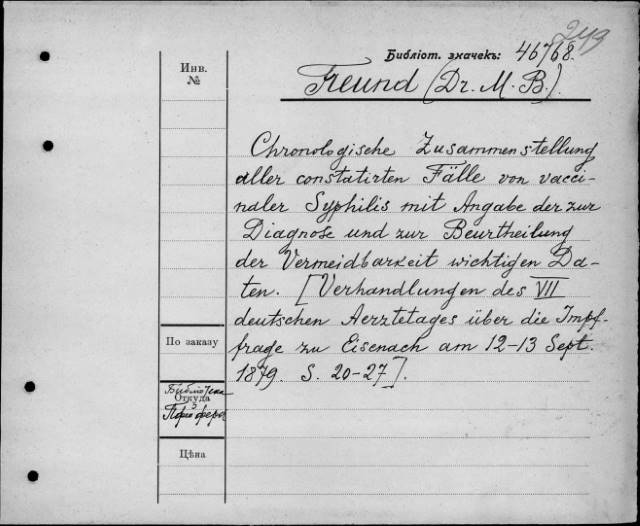 249
Библіот. значекъ: 46768.
Инв.
№
Freund (Dr. M. B.).
Chronologische Zusammenstellung
aller constatirten Fälle von vacci-
naler Syphilis mit Angabe der zur
Diagnose und zur Beurtheilung
der Vermeidbarkeit wichtigen Da-
ten. [Verhandlungen des VII
deutschen Aerztetages über die Impf-
frage zu Eisenach am 12-13 Sept.
1879. S. 20-27].
По заказу
Библіотека
Откуда
Цѣна